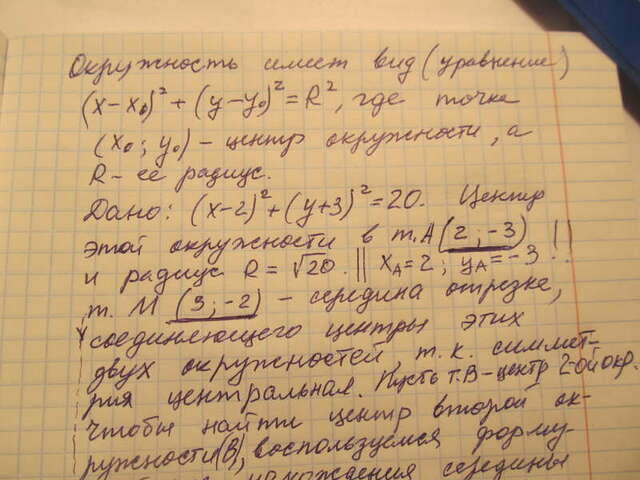 Окружность имеет вид (уравнение)
(x-x₀)²+(y-y₀)²=R², где точка
(x₀; y₀) - центр окружности, а
R- её радиус.
Дано: (x-2)²+(y+3)²=20. Центр
этой окружности в т.А(2;-3)
и радиус R=√20. || x_A=2; y_A=-3 !!
т. М (3;-2) - середина отрезке,
соединяющего центры этих
двух окружностей, т.к. симмет-
рия центральная. Пусть т.В-центр 2-ой окр.
Чтобы найти центр второй ок-
ружности(В), воспользуемся форму-
нахождения середины